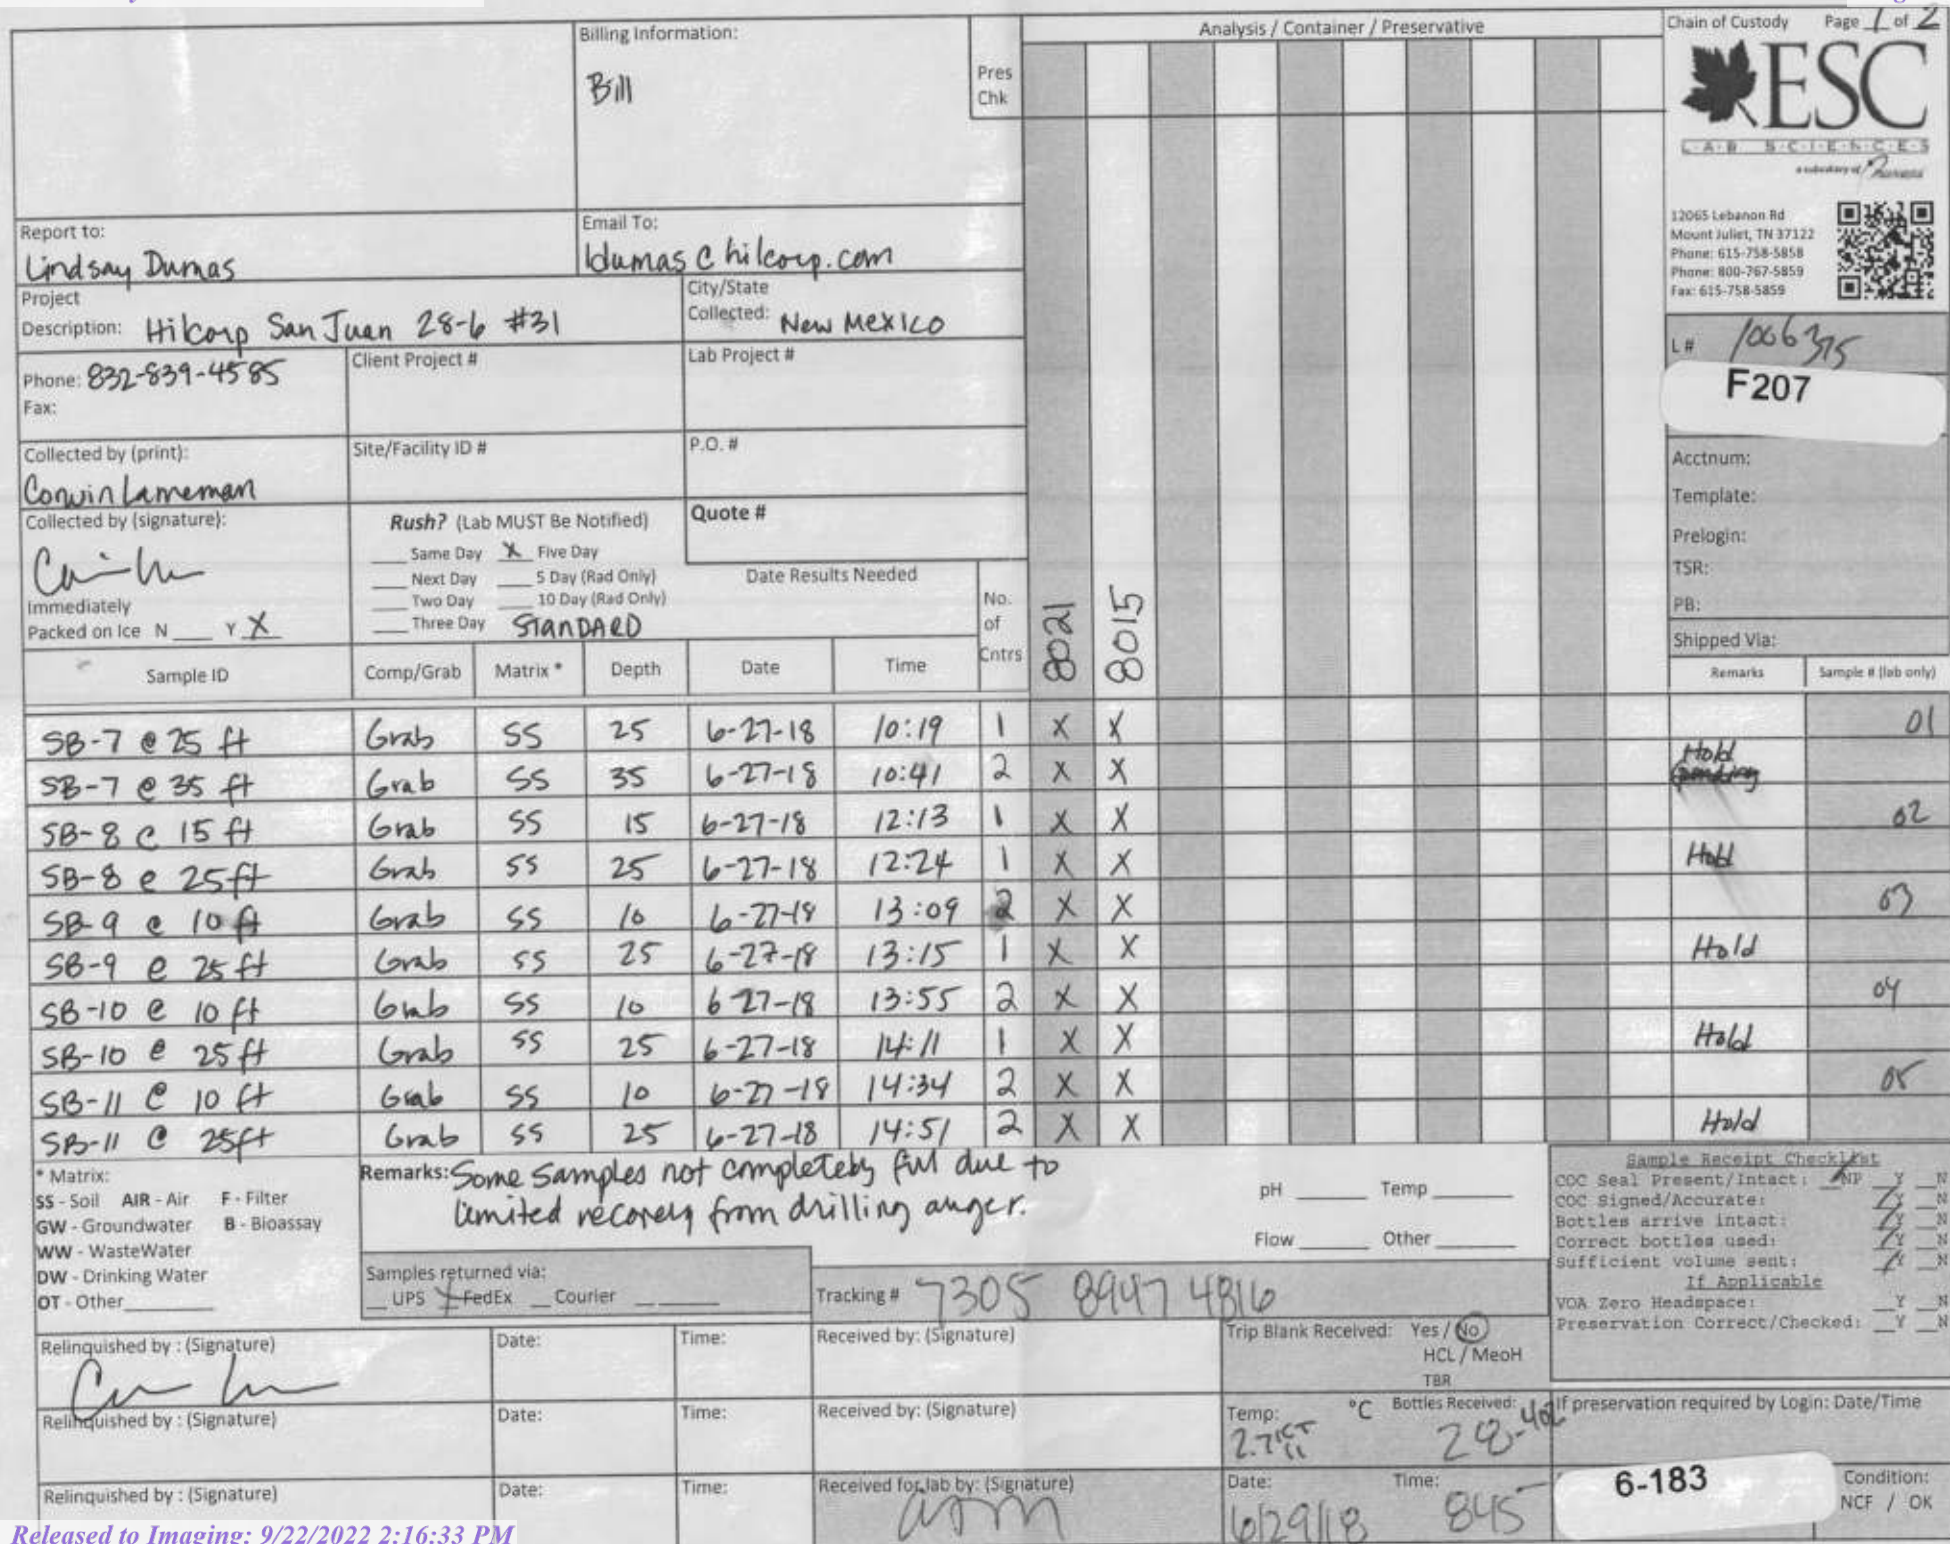 Billing Information:
Bill
Pres
Chk
Analysis / Container / Preservative
Chain of Custody Page 1 of 2
ESC
L·A·B S·C·I·E·N·C·E·S
a subsidiary of
12065 Lebanon Rd
Mount Juliet, TN 37122
Phone: 615-758-5858
Phone: 800-767-5859
Fax: 615-758-5859
Report to:
Lindsay Dumas
Email To:
ldumas@hilcorp.com
Project
Description: Hilcorp San Juan 28-6 #31
City/State
Collected: New Mexico
L# 1006375
F207
Phone: 832-839-4585
Fax:
Client Project #
Lab Project #
Collected by (print):
Corwin Lameman
Site/Facility ID #
P.O. #
Acctnum:
Template:
Prelogin:
TSR:
PB:
Shipped Via:
Collected by (signature):
Rush? (Lab MUST Be Notified)
Same Day X Five Day
Next Day 5 Day (Rad Only)
Two Day 10 Day (Rad Only)
Three Day STANDARD
Quote #
Date Results Needed
Immediately
Packed on Ice N ___ Y X
No.
of
Cntrs
8021
8015
Sample ID Comp/Grab Matrix * Depth Date Time Remarks Sample # (lab only)
SB-7 @ 25 ft Grab SS 25 6-27-18 10:19 1 X X 01
SB-7 @ 35 ft Grab SS 35 6-27-18 10:41 2 X X Hold
SB-8 @ 15 ft Grab SS 15 6-27-18 12:13 1 X X 02
SB-8 @ 25ft Grab SS 25 6-27-18 12:24 1 X X Hold
SB-9 @ 10 ft Grab SS 10 6-27-18 13:09 2 X X 03
SB-9 @ 25 ft Grab SS 25 6-27-18 13:15 1 X X Hold
SB-10 @ 10 ft Grab SS 10 6 27-18 13:55 2 X X 04
SB-10 @ 25 ft Grab SS 25 6-27-18 14:11 1 X X Hold
SB-11 @ 10 ft Grab SS 10 6-27-18 14:34 2 X X 05
SB-11 @ 25ft Grab SS 25 6-27-18 14:51 2 X X Hold
* Matrix:
SS - Soil AIR - Air F - Filter
GW - Groundwater B - Bioassay
WW - WasteWater
DW - Drinking Water
OT - Other
Remarks: Some samples not completely full due to
limited recovery from drilling auger.
pH ______ Temp ______
Flow ______ Other ______
Sample Receipt Checklist
COC Seal Present/Intact: NP Y N
COC Signed/Accurate: Y N
Bottles arrive intact: Y N
Correct bottles used: Y N
Sufficient volume sent: Y N
If Applicable
VOA Zero Headspace: Y N
Preservation Correct/Checked: Y N
Samples returned via:
UPS X FedEx Courier
Tracking # 7305 8947 4816
Relinquished by : (Signature) Date: Time: Received by: (Signature)
Trip Blank Received: Yes / No
HCL / MeoH
TBR
Relinquished by : (Signature) Date: Time: Received by: (Signature)
Temp: °C Bottles Received:
If preservation required by Login: Date/Time
Relinquished by : (Signature) Date: Time: Received for lab by: (Signature)
Date: 6/29/18 Time: 845
6-183
Condition:
NCF / OK
Released to Imaging: 9/22/2022 2:16:33 PM